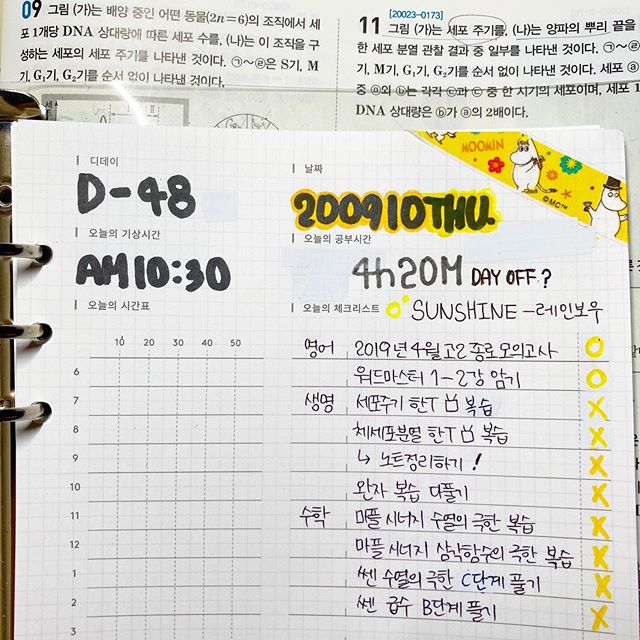 09 그림 (가)는 배양 중인 어떤 동물(2n=6)의 조직에서 세
포 1개당 DNA 상대량에 따른 세포 수를, (나)는 이 조직을 구
성하는 세포의 세포 주기를 나타낸 것이다. ㉠~㉣은 S기, M
기, G₁기, G₂기를 순서 없이 나타낸 것이다.
[20023-0173]
11 그림 (가)는 세포 주기를, (나)는 양파의 뿌리 끝을
한 세포 분열 관찰 결과 중 일부를 나타낸 것이다. ㉠~㉣은
기, M기, G₁기, G₂기를 순서 없이 나타낸 것이다. 세포 ⓐ
중 ⓐ와 ⓑ는 각각 ㉢과 ㉣ 중 한 시기의 세포이며, 세포 1
DNA 상대량은 ⓑ가 ⓐ의 2배이다.
MOOMIN
©MC™
디데이
D-48
날짜
200910THU.
오늘의 기상시간
AM10:30
오늘의 공부시간
4h20M DAY OFF?
오늘의 시간표
오늘의 체크리스트
SUNSHINE - 레인보우
10 20 30 40 50
6
7
8
9
10
11
12
1
2
3
영어 2019년 4월 고2 종로모의고사 O
워드마스터 1-2강 암기 O
생명 세포주기 한T 복습 X
체세포분열 한T 복습 X
↳ 노트정리하기! X
완자 복습 다풀기 X
수학 마플시너지 수열의 극한 복습 X
마플시너지 삼각함수의 극한 복습 X
쎈 수열의 극한 C단계 풀기 X
쎈 급수 B단계 풀기 X